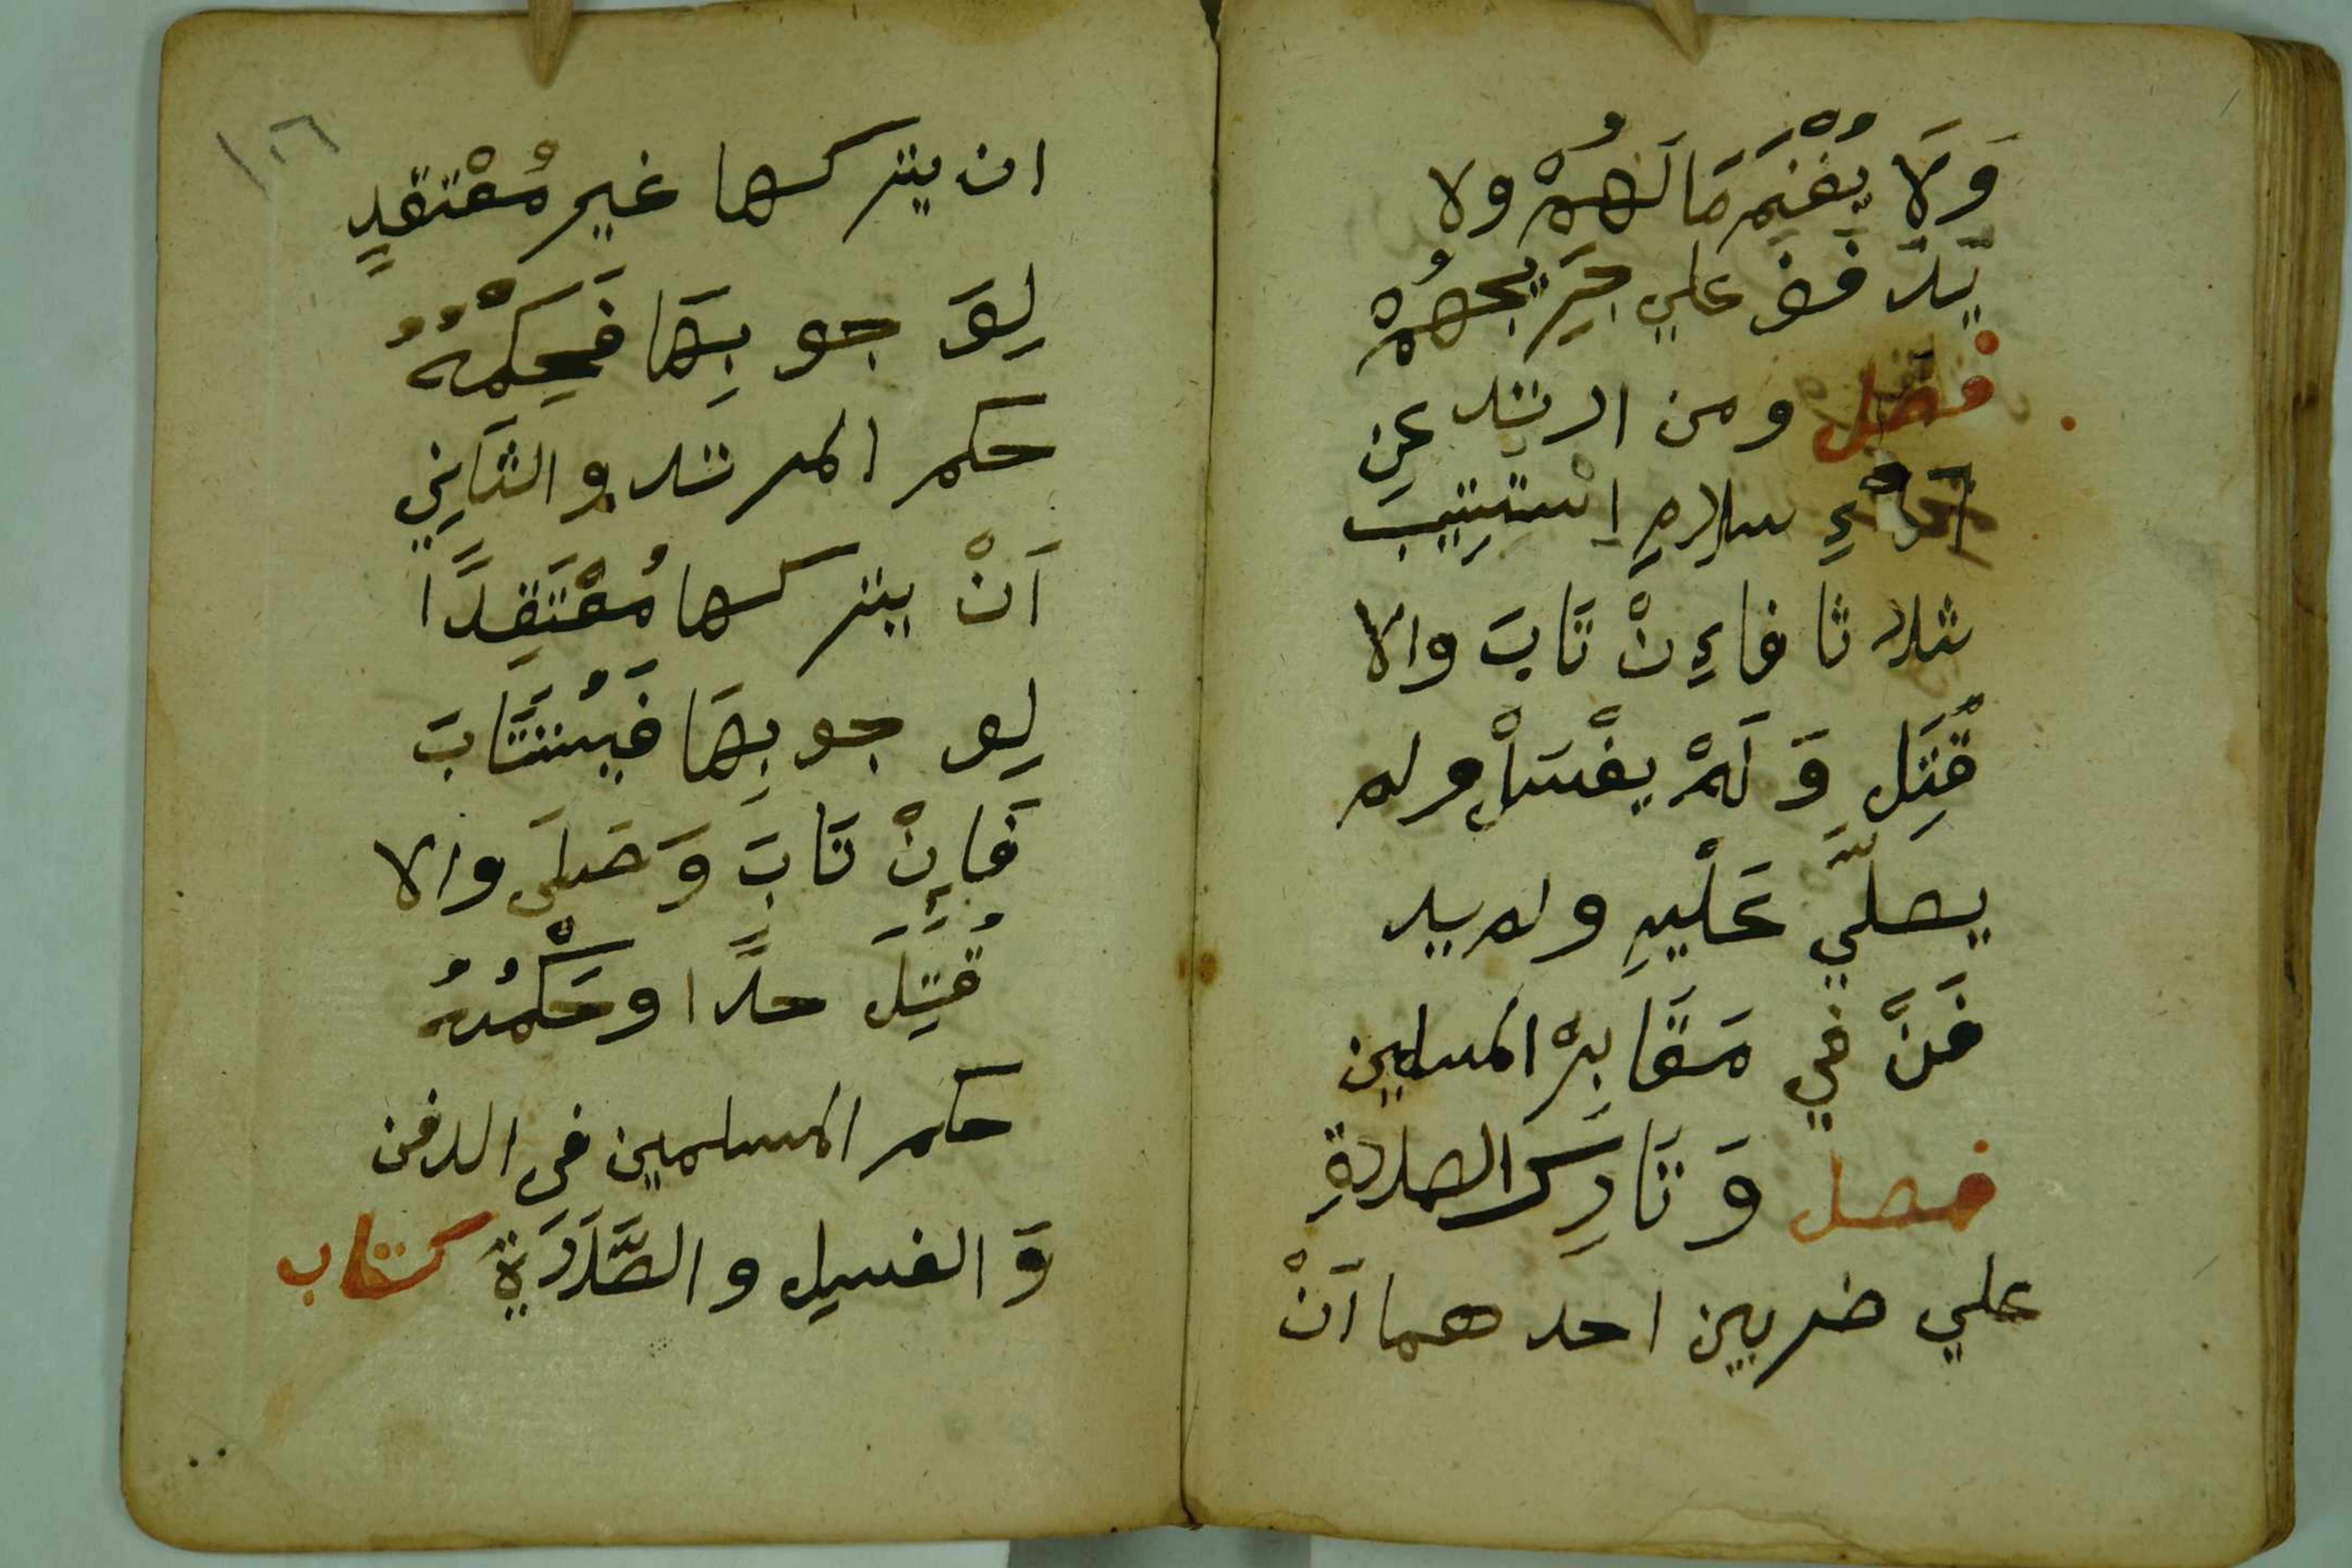 وَلَا يُغْنَم مَا لَهُمْ ولا
يدفف علي جَرِيحِهُمْ
فصل ومن ارتد عنِ
سلامِ اِسْتتِيبَ
ثلا ثا فاءِنْ تَابَ والا
قُتِل وَ لَمْ يغْسَلْ ولم
يصلَّي عَلْيهِ ولم يد
فَنَّ في مَقَا بِرْ المسلمين
فصل وَ تَارِك الصلاةِ
علي ضربين احد هما اَنْ
١٢٦
ان يتركها غير مُعْتقدٍ
لِوَ جو بِهَا فَحِكْمُهُ
حكم المرتد والثَانيِ
اَنْ يتركها مُعْتَقِدًا
لِو جو بِهَا فَيُستَتَابَ
فَإِنْ تَابَ وَصَلَي والا
قُتِلَ حدًا وحَكْمُهُ
حكم المسلمين في الدفن
وَ الغسيل و الصَّلَاَةِ كتاب